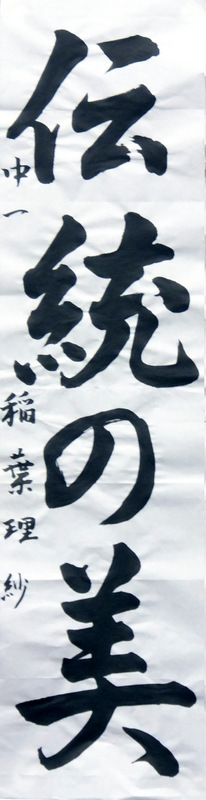 伝統の美
中一 稲葉理紗